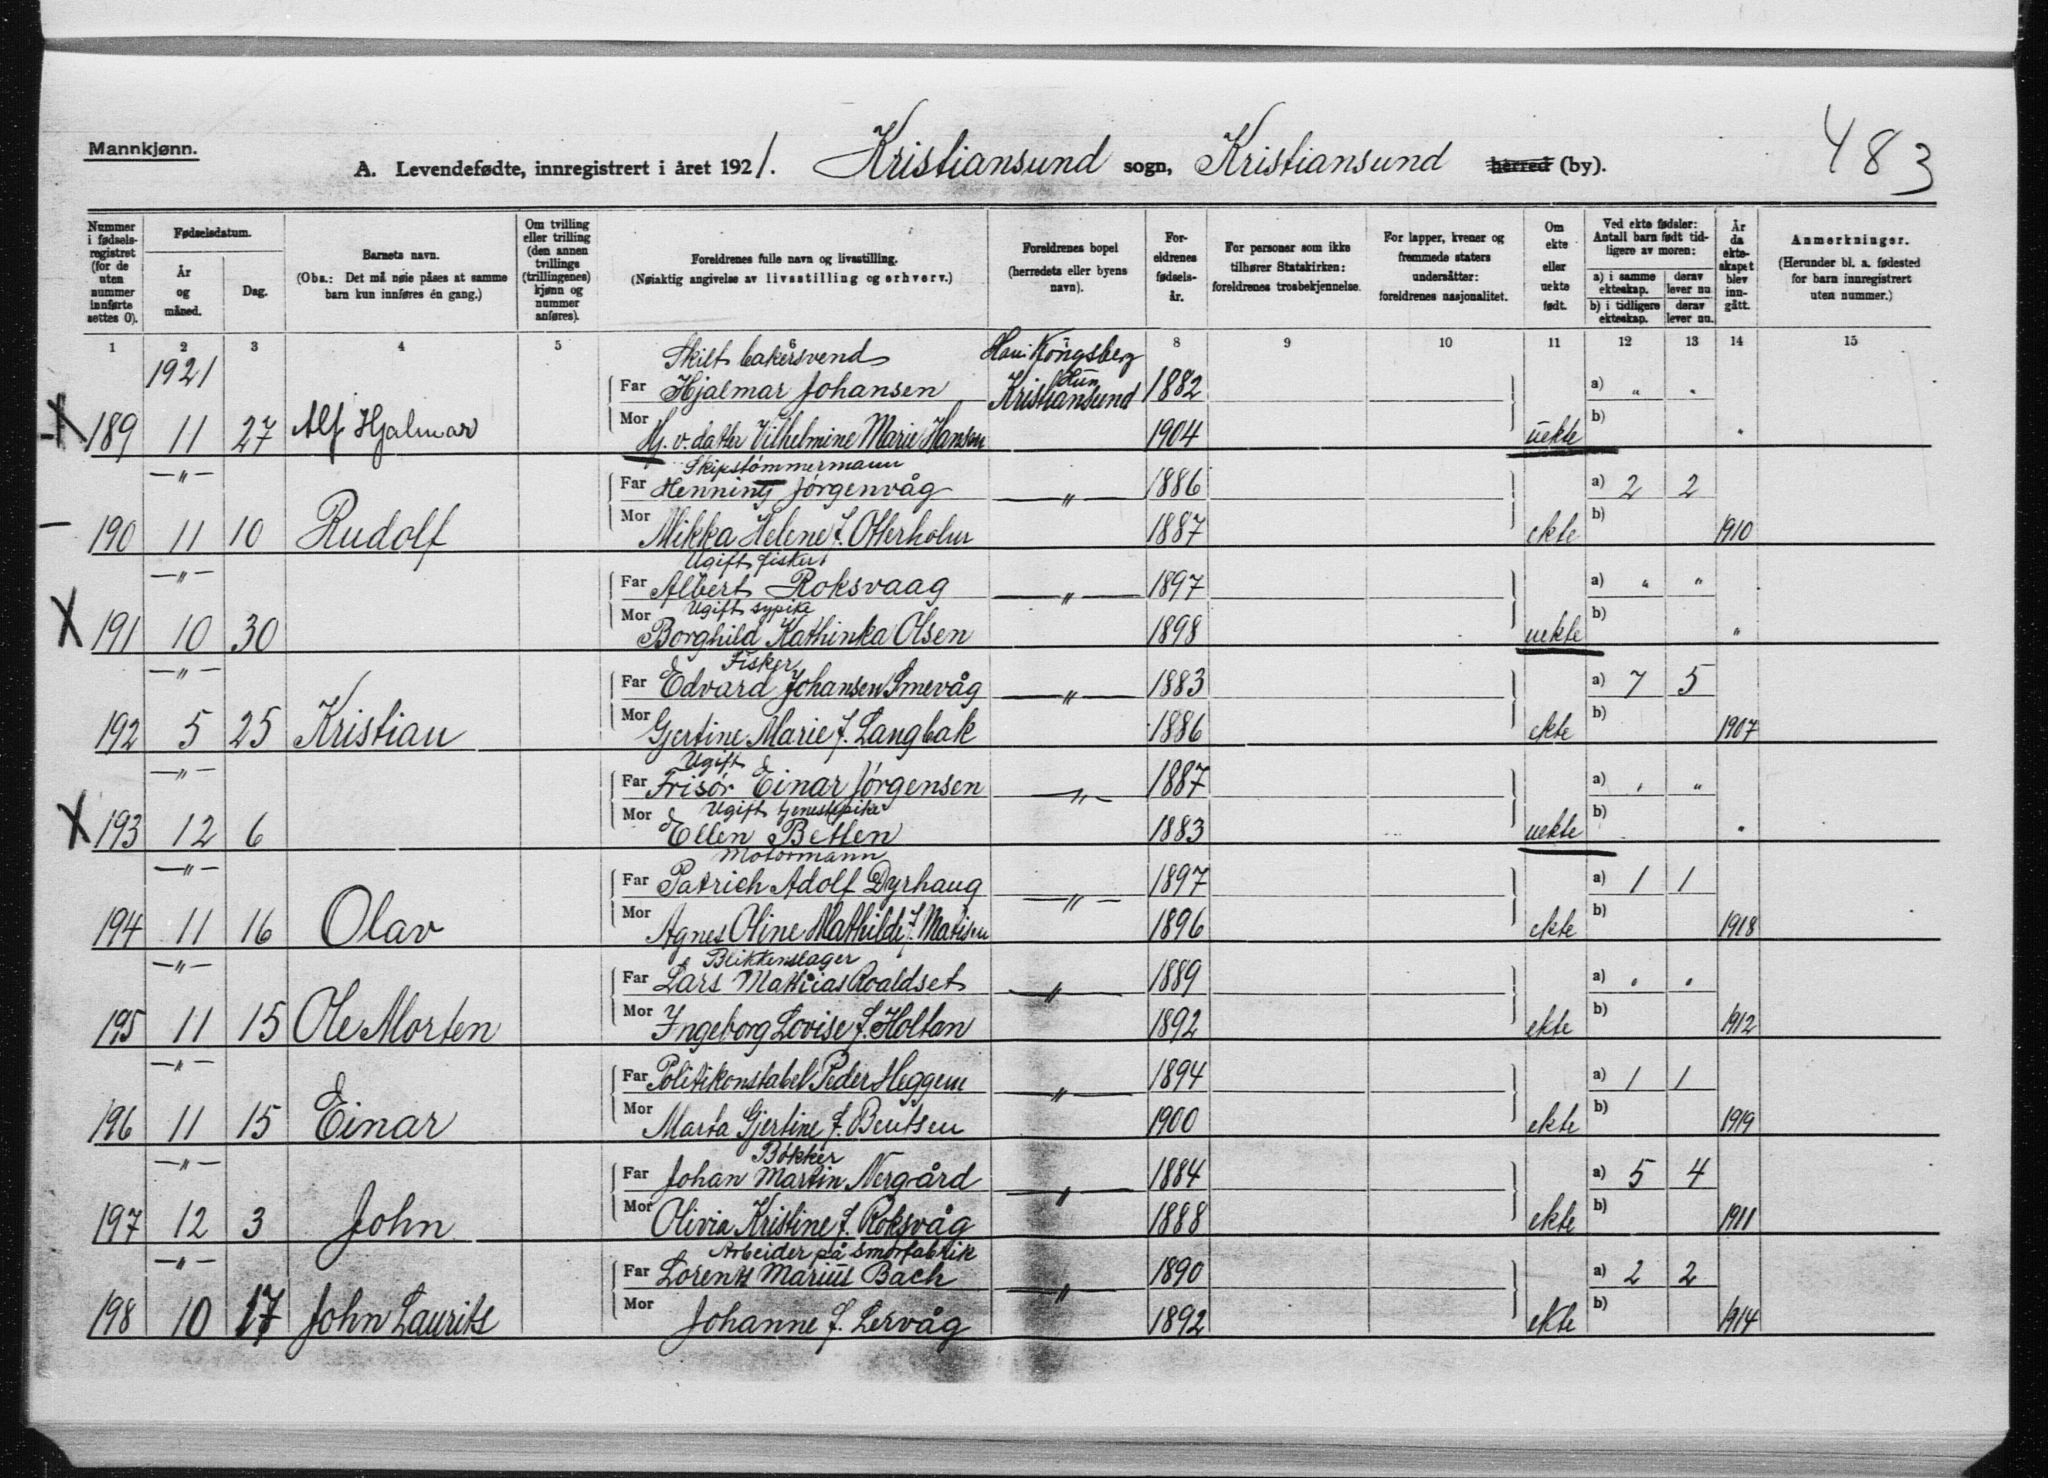 483
Mannkjønn.
A. Levendefødte, innregistrert i året 1921. Kristiansund sogn, Kristiansund herred (by).
Nummer i fødsels-registret (for de uten nummer innførte settes 0).
Fødselsdatum.
År og måned.
Dag.
Barnets navn.
(Obs.: Det må nøie påses at samme barn kun innføres én gang.)
Om tvilling eller trilling (den annen tvillings (trillingenes) kjønn og nummer anføres).
Foreldrenes fulle navn og livsstilling.
(Nøiaktig angivelse av livsstilling og erhverv.)
Foreldrenes bopel (herredets eller byens navn).
Foreldrenes fødselsår.
For personer som ikke tilhører Statskirken: foreldrenes trosbekjennelse.
For lapper, kvener og fremmede staters undersåtter: foreldrenes nasjonalitet.
Om ekte eller uekte født.
Ved ekte fødsler: Antall barn født tidligere av moren:
a) i samme ekteskap.
derav lever nu
b) i tidligere ekteskap.
derav lever nu.
År da ekteskapet blev inngått.
Anmerkninger.
(Herunder bl. a. fødested for barn innregistrert uten nummer.)
1 2 3 4 5 8 9 10 11 12 13 14 15
1921
Skilt bakersvend Han Kongsberg
Far Hjalmar Johansen Hun Kristiansund 1882 a) " "
X 189 11 27 Alf Hjalmar Mor Hj. v. datter Vilhelmine Marie Hansen 1904 uekte b) "
—"— Skipstømmermann
Far Henning Jørgenvåg —"— 1886 a) 2 2
– 190 11 10 Rudolf Mor Mikka Helene f. Otterholm 1887 ekte b) 1910
—"— Ugift fisker
Far Albert Roksvaag —"— 1897 a) " "
Ugift sypike
X 191 10 30 Mor Borghild Kathinka Olsen 1898 uekte b) "
—"— Fisker
Far Edvard Johansen Smevåg —"— 1883 a) 7 5
192 5 25 Kristian Mor Gjertine Marie f. Langbak 1886 ekte b) 1907
—"— Ugift
Far Frisør Einar Jørgensen —"— 1887 a) " "
Ugift tjenestepike
X 193 12 6 Mor Ellen Betten 1883 uekte b) "
—"— Motormann
Far Patrich Adolf Dyrhaug —"— 1897 a) 1 1
194 11 16 Olav Mor Agnes Oline Mathilde f. Matisen 1896 ekte b) 1918
—"— Blikkenslager
Far Lars Mathias Roaldset —"— 1889 a) " "
195 11 15 Ole Morten Mor Ingeborg Lovise f. Holtan 1892 ekte b) 1912
—"—
Far Politikonstabel Peder Heggem —"— 1894 a) 1 1
196 11 15 Einar Mor Marta Gjertine f. Bentsen 1900 ekte b) 1919
—"— Bøkker
Far Johan Martin Nergård —"— 1884 a) 5 4
197 12 3 John Mor Olivia Kristine f. Roksvåg 1888 ekte b) 1911
—"— Arbeider på smørfabrik
Far Lorents Marius Bach —"— 1890 a) 2 2
198 10 17 John Laurits Mor Johanne f. Lervåg 1892 ekte b) 1914